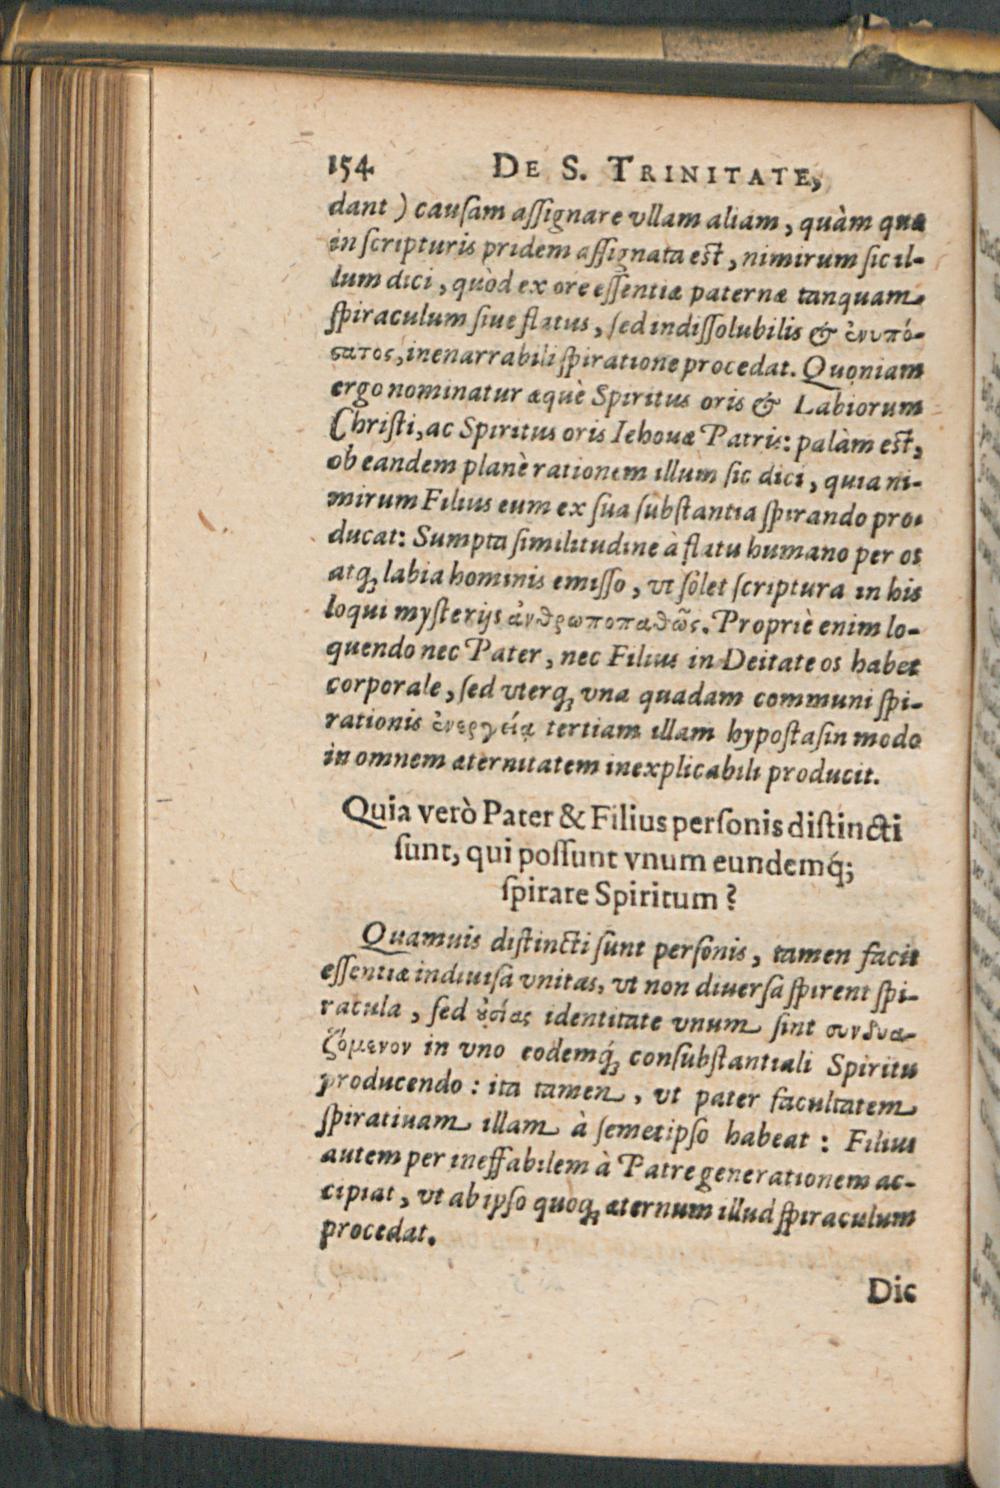 154 DE S. TRINITATE,
dant ) cauſam aſſignare vllam aliam, quàm quæ
in ſcripturis pridem aſſignata eſt, nimirum ſic il-
lum dici, quòd ex ore eſſentiæ paternæ tanquam
ſpiraculum ſiue flatus, ſed indiſſolubilis & ἐνυπό-
ϛατος, inenarrabili ſpiratione procedat. Quoniam
ergo nominatur æquè Spiritus oris & Labiorum
Chriſti, ac Spiritus oris Iehouæ Patris: palàm eſt,
ob eandem planè rationem illum ſic dici, quia ni-
mirum Filius eum ex ſua ſubſtantia ſpirando pro-
ducat: Sumpta ſimilitudine à flatu humano per os
atq; labia hominis emiſſo, vt ſolet ſcriptura in his
loqui myſterijs ἀνθρωποπαθῶς. Propriè enim lo-
quendo nec Pater, nec Filius in Deitate os habet
corporale, ſed vterq; vna quadam communi ſpi-
rationis ἐνεργείᾳ tertiam illam hypoſtaſin modo
in omnem æternitatem inexplicabili producit.
Quia verò Pater & Filius perſonis diſtincti
ſunt, qui poſſunt vnum eundemq́;
ſpirare Spiritum?
Quamuis diſtincti ſunt perſonis, tamen facit
eſſentiæ indiuiſa vnitas, vt non diuerſa ſpirent ſpi-
racula, ſed ȣ̓σίας identitate vnum ſint συνδυα-
ζόμενον in vno eodemq́; conſubſtantiali Spiritu
producendo: ita tamen, vt pater facultatem
ſpiratiuam illam à ſemetipſo habeat: Filius
autem per ineffabilem à Patre generationem ac-
cipiat, vt ab ipſo quoq; æternum illud ſpiraculum
procedat.
Dic